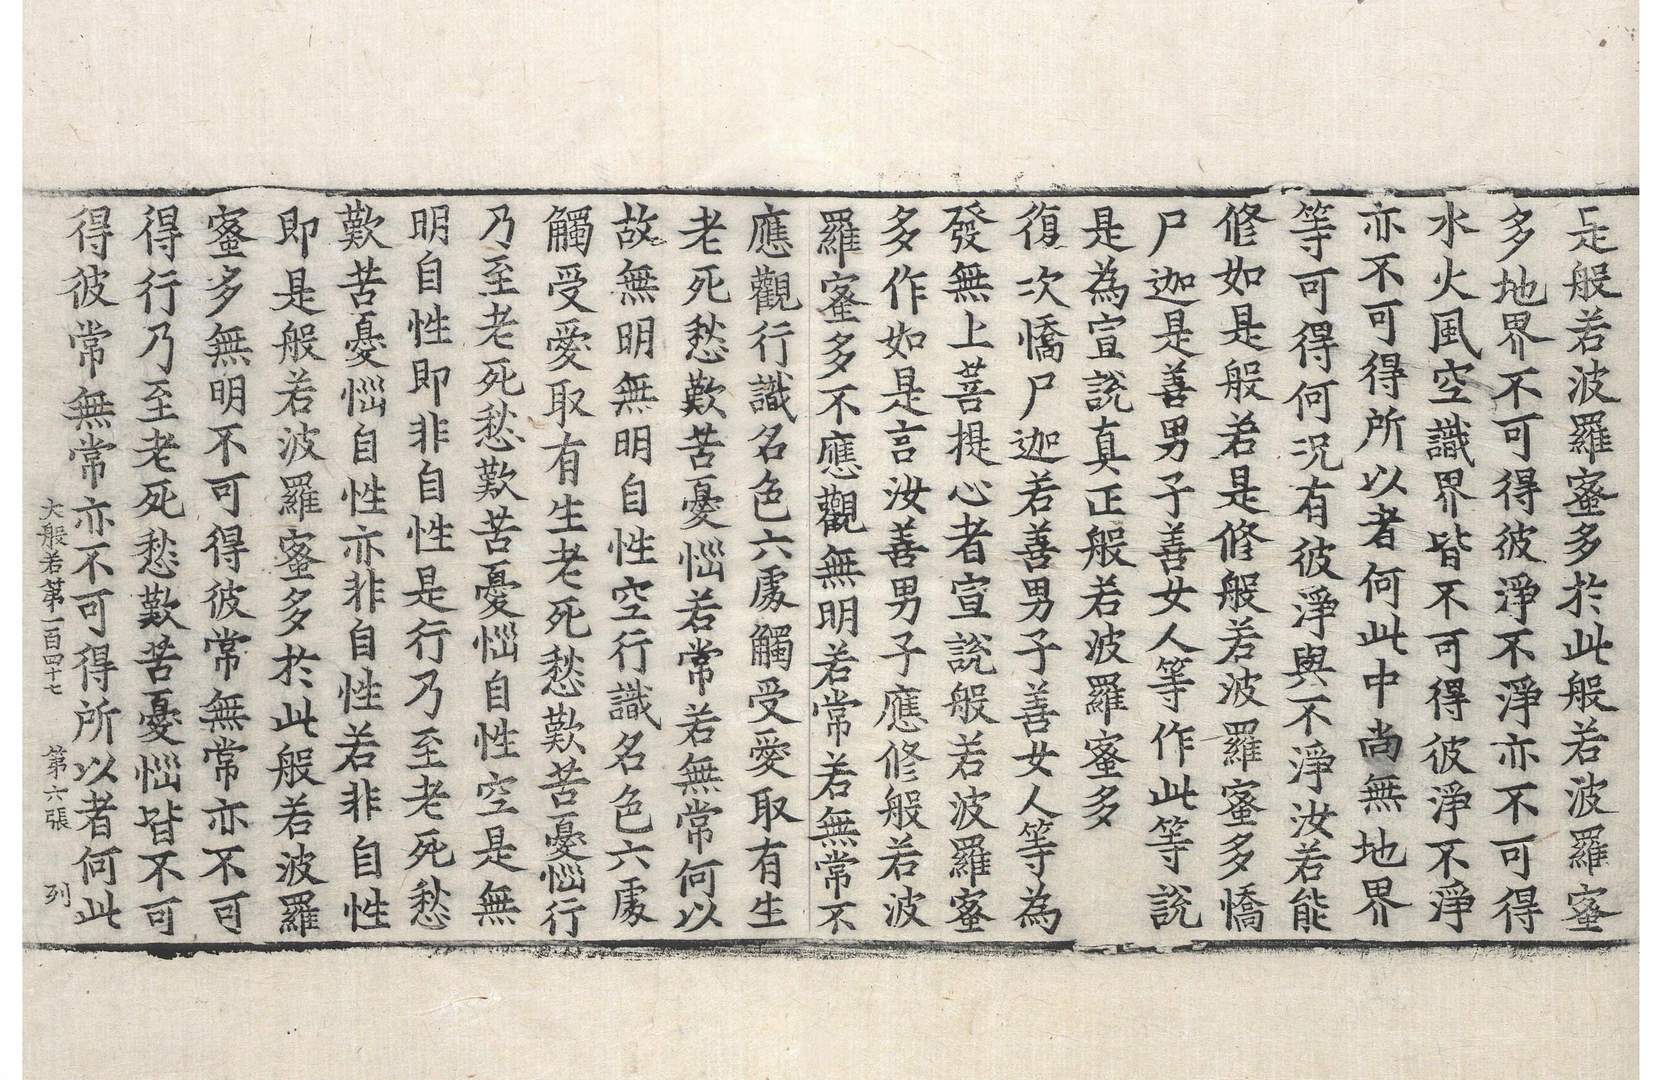 是般若波羅蜜多於此般若波羅蜜
多地界不可得彼淨不淨亦不可得
水火風空識界皆不可得彼淨不淨
亦不可得所以者何此中尚無地界
等可得何況有彼淨與不淨汝若能
修如是般若是修般若波羅蜜多憍
尸迦是善男子善女人等作此等說
是為宣說真正般若波羅蜜多
復次憍尸迦若善男子善女人等為
發無上菩提心者宣說般若波羅蜜
多作如是言汝善男子應修般若波
羅蜜多不應觀無明若常若無常不
應觀行識名色六處觸受愛取有生
老死愁歎苦憂惱若常若無常何以
故無明無明自性空行識名色六處
觸受愛取有生老死愁歎苦憂惱行
乃至老死愁歎苦憂惱自性空是無
明自性即非自性是行乃至老死愁
歎苦憂惱自性亦非自性若非自性
即是般若波羅蜜多於此般若波羅
蜜多無明不可得彼常無常亦不可
得行乃至老死愁歎苦憂惱皆不可
得彼常無常亦不可得所以者何此
大般若第一百四十七 第六張 列